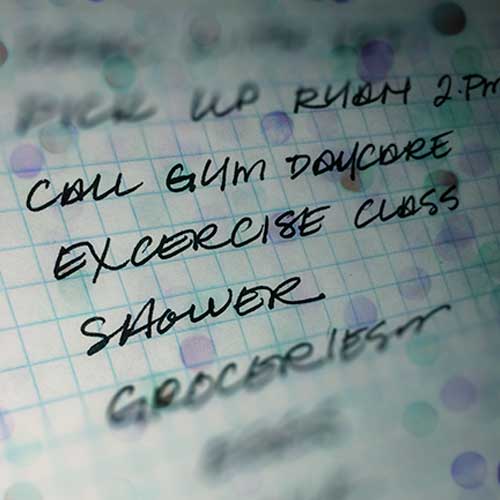 PICK UP RYAN 2.Pm
CALL GYM DAYCARE
EXCERCISE CLASS
SHOWER
GROCERIES